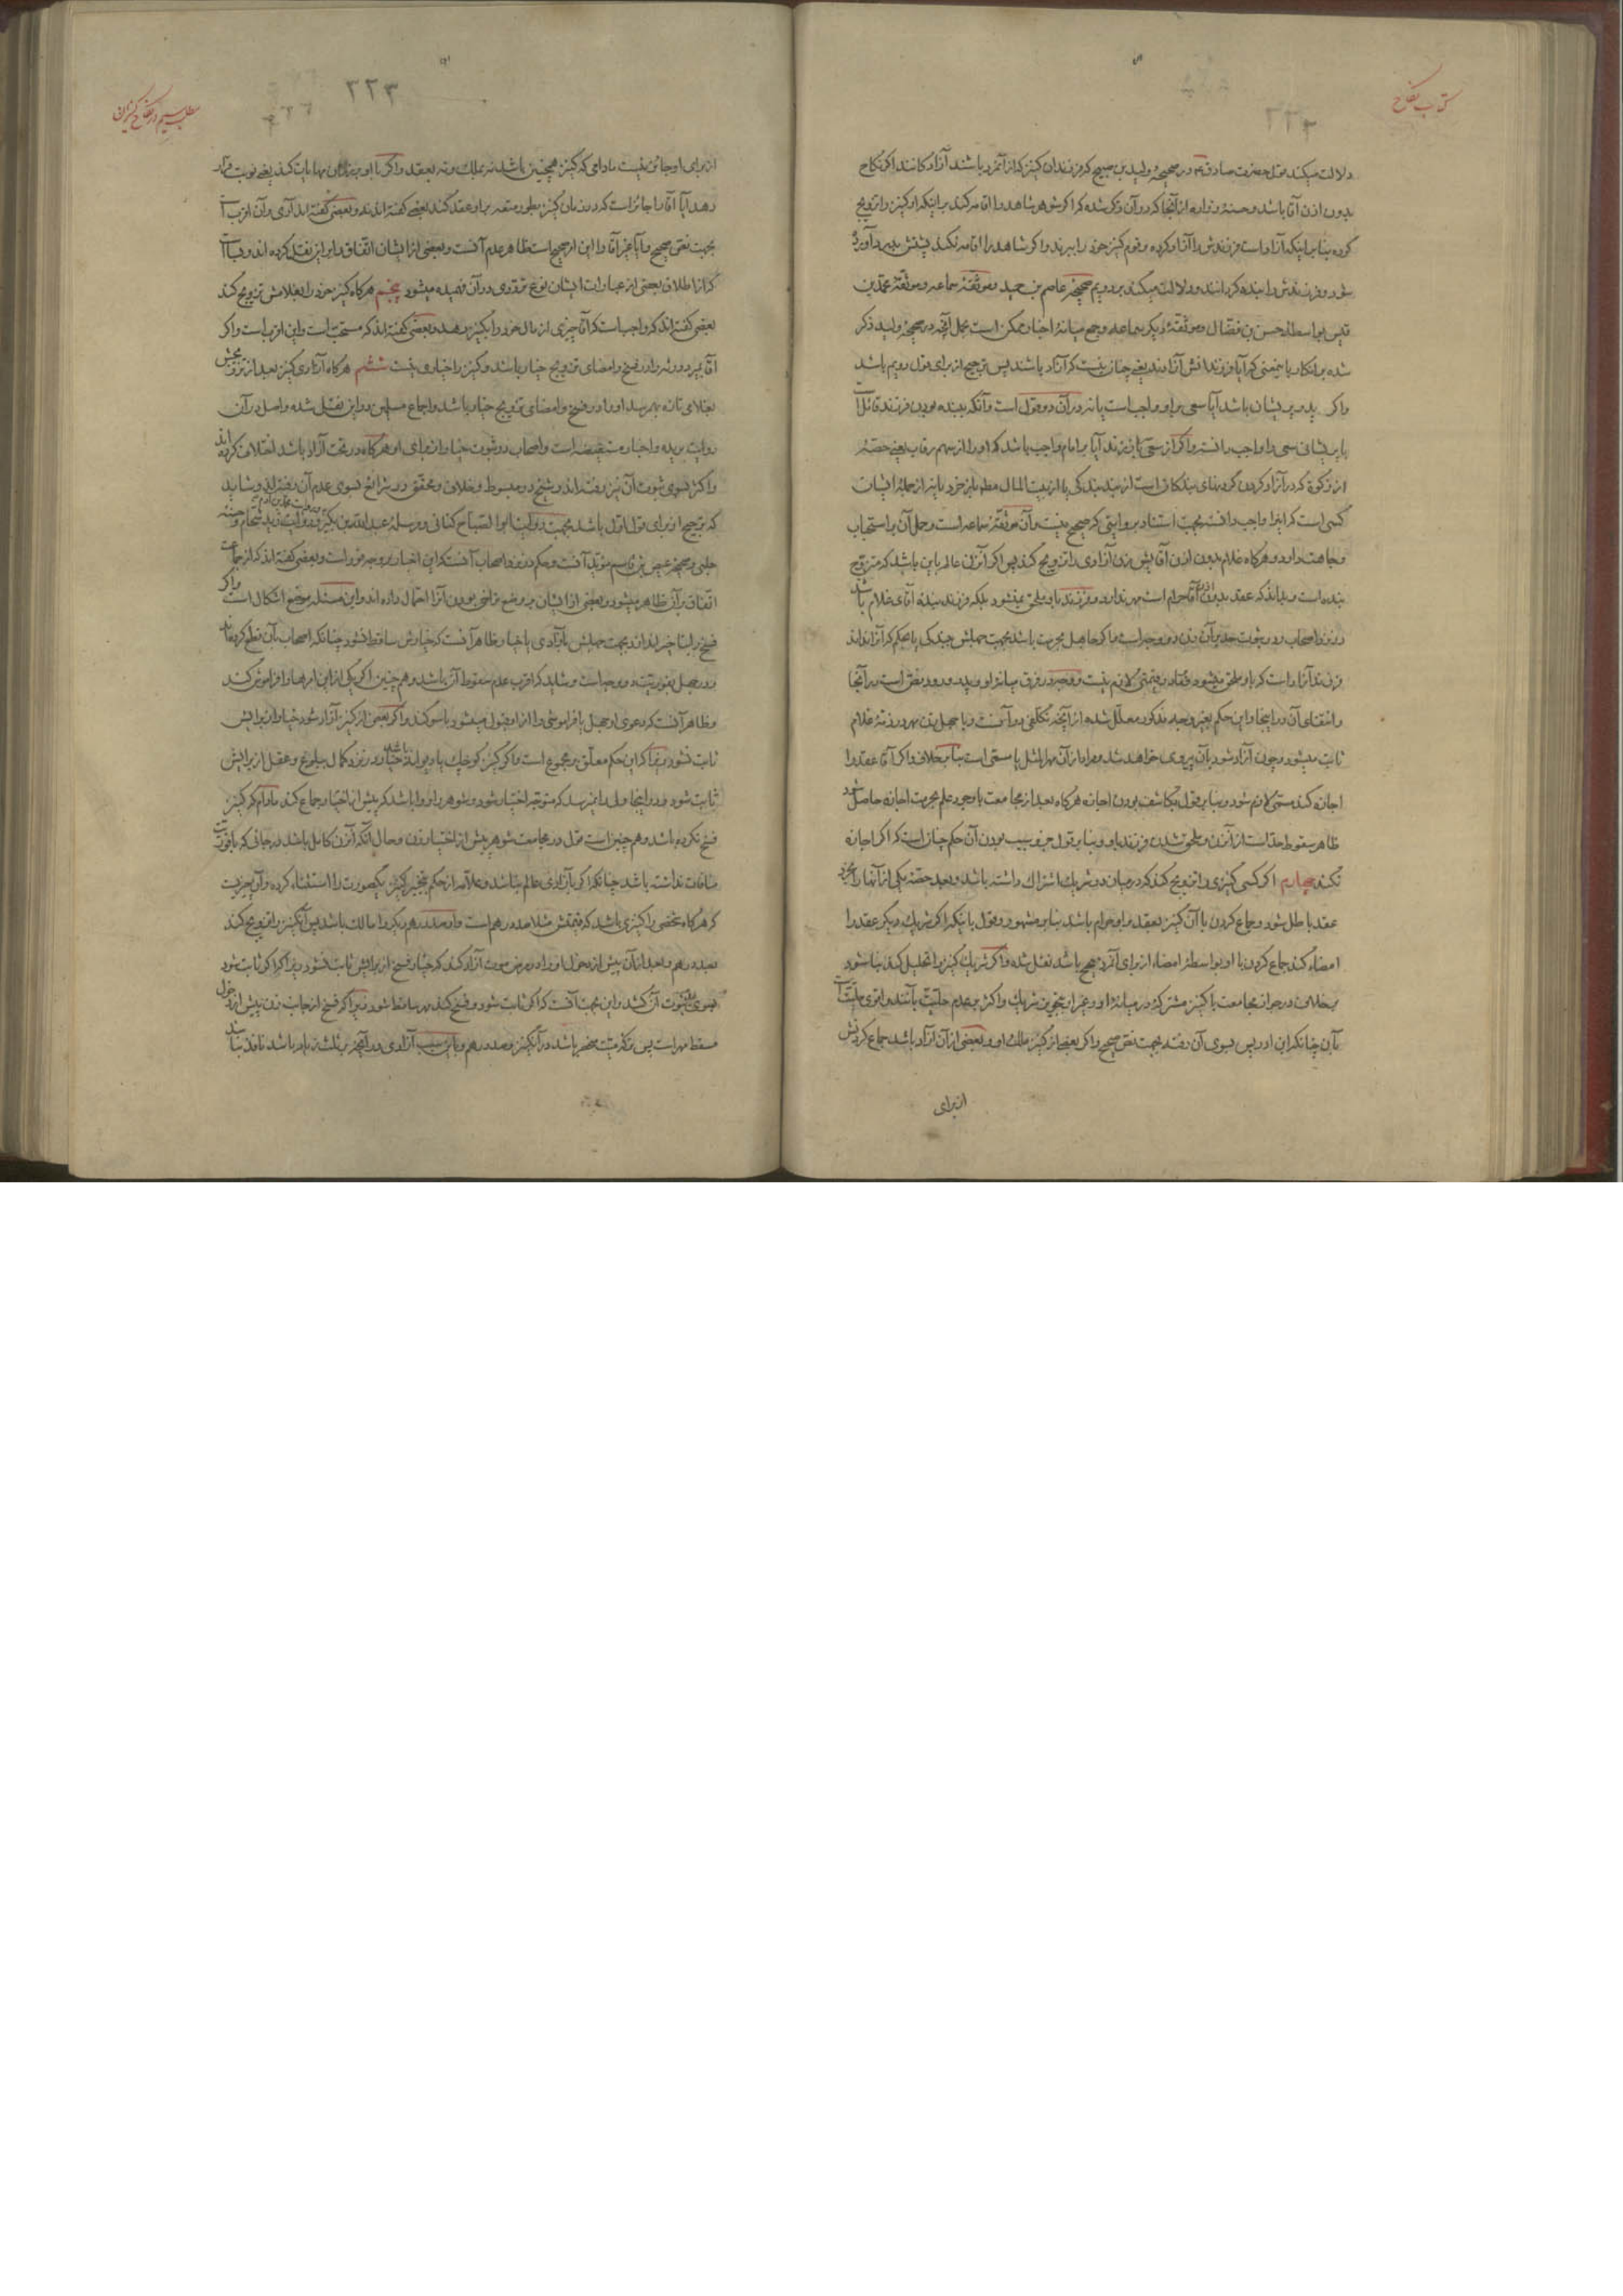 کتاب نکاح
دلالت میکند قول حضرت صادق در صحیحهٔ ولید بن صبیح که فرزندان کنیز که از آنمرد باشند آزاد کانند اکر نکاح
بدون اذن آقا باشد و حسنهٔ زراره از آنجا که در آن ذکر شده که اکر شوهر شاهد را اقامه کند بر اینکه او کنیز را تزویج
کرده بنا بر اینکه آزاد است فرزندش را آزاد کرده و قوم کنیز خود را ببرند و اکر شاهد را اقامه نکند پشتش بدرد آورده
شود و فرزندش را بنده کردانند و دلالت میکند بر دویم صحیحهٔ عاصم بن حمید و موثقهٔ سماعه و موثقهٔ محمد بن
قیس بواسطهٔ حسن بن فضال و موثقهٔ دیکر سماعه و جمع میانهٔ اخبار ممکن است بحمل آنچه در صحیحهٔ ولید ذکر
شده بر انکار باینمعنی که آیا فرزندانش آزادند یعنی چنان نیست که آزاد باشند پس ترجیح از برای قول دویم باشد
واکر پدر پریشان باشد آیا سعی بر او واجب است یا نه در آن دو قول است و آنکه ببنده بودن فرزند قائل
با پریشانی سعی را واجب دانسته واکر از سعی ابا بزند آیا بر امام واجب باشد که او را از سهم رقاب یعنی حصهٔ
از زکوة که در آزاد کردن کردنهای بندکان است از بند بندکی یا از بیت المال مطلقا بخرد یا نه از جملهٔ ایشان
کسی است که اینرا واجب دانسته بجهت استناد بروایتی که صحیح نیست و آن موثقهٔ سماعه است و حمل آن بر استحباب
وجاهت دارد و هرکاه غلام بدون اذن آقایش زن آزادی را تزویج کند پس اکر آنزن عالم باین باشد که متزوج
بنده است و بداند که عقد بدون اذن آقا حرام است مهر ندارد و فرزند باو ملحق نمیشود بلکه فرزند بندهٔ آقای غلام باشد
در نزد اصحاب و در ثبوت حد بر آن زن دو وجه است و اکر جاهل بحرمت باشد بجهت جهلش ببندکی یا بحکم که آزاد اند
فرزند آزاد است که باو ملحق میشود و قیمتی لازم نیست و وجه در فرق میانهٔ او و پدر ورود نص است در آنجا
وانتفای آن در اینجا و این حکم بغیر وجه مذکور معلل شده از آنچه تکلفی در آنست و با جهل زن مهر در ذمهٔ غلام
ثابت میشود و چون آزاد شود بآن پیروی خواهد شد و مراد از آن مهرالمثل یا مسمی است بنا بر خلاف واکر آقا عقد را
اجازه کند مسمی لازم شود و بنا بر قول بکاشف بودن اجازه هرکاه بعد از مجامعت با وجود علم بحرمت اجازه حاصل شود
ظاهر سقوط حد است از آنزن و ملحق شدن فرزند باو و بنا بر قول جزو سبب بودن آن حکم چنان است که اکر اجازه
نکند چهارم اکر کسی کنیزی را تزویج کند که در میان دو شریک اشتراک داشته باشد و بعد حصهٔ یکی از آنها را بخرد
عقد باطل شود و جماع کردن با آن کنیز بعقد بر او حرام باشد بنا بر مشهور و قول باینکه اکر شریک دیکر عقد را
امضاء کند جماع کردن با او بواسطهٔ امضاء از برای آنمرد صحیح باشد نقل شده واکر شریک کنیز را تحلیل کند بنا شود
بر خلاف در جواز مجامعت با کنیز مشترکه در میانهٔ او و غیر او بتجویز شریک واکثر بر عدم حلیت باشند و اقوی حلیت است
بآن چنانکه ابن ادریس بسوی آن رفته بجهت نص صحیح واکر بعض از کنیز ملک او و بعضی از آن آزاد باشد جماع کردنش
از برای
۲۲۳
مطلب سیم در نکاح کنیزان
از برای او جائز نیست مادامی که کنیز همچنین باشد نه بملک و نه بعقد واکر با او بر زمان مهایات کند یعنی نوبت قرار
دهد آیا آقا را جائز است که در زمان کنیز بطور متعه بر او عقد کند بعضی کفته‌اند نه و بعضی کفته‌اند آری و آن اقرب است
بجهت نص صحیح و آیا غیر آقا را این ار صحیح است ظاهر عدم آنست و بعضی از ایشان اتفاق را بر این نقل کرده‌اند
که از اطلاق بعضی از عبارات ایشان نوع ترددی در آن فهمیده میشود پنجم هرکاه کنیز خود را بغلامش تزویج کند
بعضی کفته‌اند که واجب است که آقا چیزی از مال خود را بکنیز بدهد و بعضی کفته‌اند که مستحب است و این اقرب است واکر
آقا بمیرد ورثه را در فسخ و امضای تزویج خیار باشد و کنیز را خیاری نیست ششم هرکاه آزادی کنیز بعد از تزویجش
بغلامی تازه بهمرسد او را در فسخ و امضای تزویج خیار باشد و اجماع مسلمین در این نقل شده و اصل در آن
روایت بریره و اخبار مستفیضه است و اصحاب در ثبوت خیار از برای او هرکاه در تحت آزاد باشد اختلاف کرده‌اند
واکثر بسوی ثبوت آن نیز رفته‌اند و شیخ در مبسوط و خلاف و محقق در شرائع بسوی عدم آن رفته‌اند و شاید
که ترجیح از برای قول اول باشد بجهت روایت ابوالصباح کنانی و مرسلهٔ عبدالله بن بکیر و روایت محمد بن آدم و روایت زید شحام و حسنه
حلبی و صحیحهٔ عیص بن قاسم مؤید آنست و حکم در نزد اصحاب آنست که این اخبار بر وجه فور است و بعضی کفته‌اند که از جماعت
اتفاق بر آن ظاهر میشود و بعضی از ایشان بر وضع تراخی بودن آنرا احتمال داده‌اند و این مسئله موضع اشکال است واکر
فسخ را بتأخیر اندازد بجهت جهلش بآزادی یا خیار ظاهر آنست که خیارش ساقط نشود چنانکه اصحاب بآن قطع کرده‌اند
و در جهل بفوریت دو وجه است و شاید که اقرب عدم سقوط آن باشد و هم چنین اکر یکی از این امرها را فراموش کند
و ظاهر آنست که دعوی او جهل یا فراموشی را از او قبول میشود با سوکند واکر بعضی از کنیز آزاد شود خیار از برایش
ثابت نشود زیرا که این حکم معلق بر مجموع است واکر کنیز کوچک یا دیوانه باشد خیار در نزد کمال ببلوغ و عقل از برایش
ثابت شود و در اینجا ولی را نمیرسد که متوجه اختیار شود و شوهر را روا باشد که پیش از اختیار جماع کند مادام که کنیز
فسخ نکرده باشد و هم چنین است قول در مجامعت شوهر پیش از اختیار زن و حال آنکه آنزن کامل باشد در جائی که با فوریت
منافات نداشته باشد چنانکه اکر بآزادی عالم نباشد و علامه از حکم بتخییر کنیز یکصورت را استثناء کرده و آن چیزیست
که هرکاه شخصی را کنیزی باشد که قیمتش مثلا صد درهم است و او صد درهم دیکر را مالک باشد پس آنکنیز را تزویج کند
بصد درهم و بعد از آن پیش از دخول او را در مرض موت آزاد کند که خیار فسخ از برایش ثابت نشود زیرا که اکر ثابت شود
بسوی عدم ثبوت آن کشد و این بجهت آنست که اکر ثابت شود و فسخ کند مهر ساقط شود زیرا که فسخ از جانب زن پیش از دخول
مسقط مهر است پس ترکهٔ میت منحصر باشد در آنکنیز و صد درهم و باین سبب آزادی در آنچه بر ثلث زیاد باشد نافذ نباشد